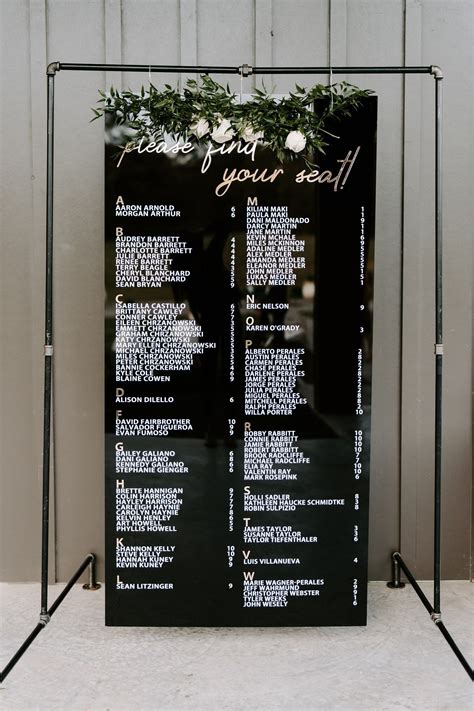 please find
your seat!
A
AARON ARNOLD 6
MORGAN ARTHUR 6
B
AUDREY BARRETT
BRANDON BARRETT
CHARLOTTE BARRETT
JULIE BARRETT
RENEE BARRETT
TERRY BEAGLE
CHERYL BLANCHARD
DAVID BLANCHARD
SEAN BRYAN
C
ISABELLA CASTILLO
BRITTANY CAWLEY
CONNER CAWLEY
EILEEN CHRZANOWSKI
EMMETT CHRZANOWSKI
GRAHAM CHRZANOWSKI
KATY CHRZANOWSKI
MARY ELLEN CHRZANOWSKI
MICHAEL CHRZANOWSKI
MILES CHRZANOWSKI
PETER CHRZANOWSKI
BANNIE COCKERHAM
KYLE COLE
BLAINE COWEN
D
ALISON DILELLO
F
DAVID FAIRBROTHER 10
SALVADOR FIGUEROA
EVAN FUMOSO
G
BAILEY GALIANO
DANI GALIANO
KENNEDY GALIANO
STEPHANIE GIENGER
H
BRETTE HANNIGAN
COLIN HARRISON
HAYLEY HARRISON
CARLEIGH HAYNIE
CAROLYN HAYNIE
KELVIN HENLEY
ART HOWELL
PHYLLIS HOWELL
K
SHANNON KELLY 10
STEVE KELLY 10
HANNAH KUNEY
KEVIN KUNEY
L
SEAN LITZINGER 9
M
KILIAN MAKI
PAULA MAKI
DANI MALDONADO
DARCY MARTIN
JANE MARTIN
KEVIN MCHALE
MILES MCKINNON
ADALINE MEDLER
ALEX MEDLER
AMANDA MEDLER
ELEANOR MEDLER
JOHN MEDLER
LUKAS MEDLER
SALLY MEDLER
N
ERIC NELSON
O
KAREN O'GRADY 3
P
ALBERTO PERALES
AUSTIN PERALES
CARMEN PERALES
CHASE PERALES
DARLENE PERALES
JAMES PERALES
JORGE PERALES
JULIA PERALES
MIGUEL PERALES
MITCHELL PERALES
RALPH PERALES
WILLA PORTER
R
BOBBY RABBITT
CONNIE RABBITT
JAMIE RABBITT
ROBERT RABBITT
BROOK RADCLIFFE
MICHAEL RADCLIFFE
ELIA RAY
VALENTIN RAY
MARK ROSEPINK
S
HOLLI SADLER
KATHLEEN HAUCKE SCHMIDTKE
ROBIN SULPIZIO
T
JAMES TAYLOR
SUSANNE TAYLOR
TAYLOR TIEFENTHALER
V
LUIS VILLANUEVA 4
W
MARIE WAGNER-PERALES
JEFF WAHRMUND
CHRISTOPHER WEBSTER
TYLER WEEKS
JOHN WESELY